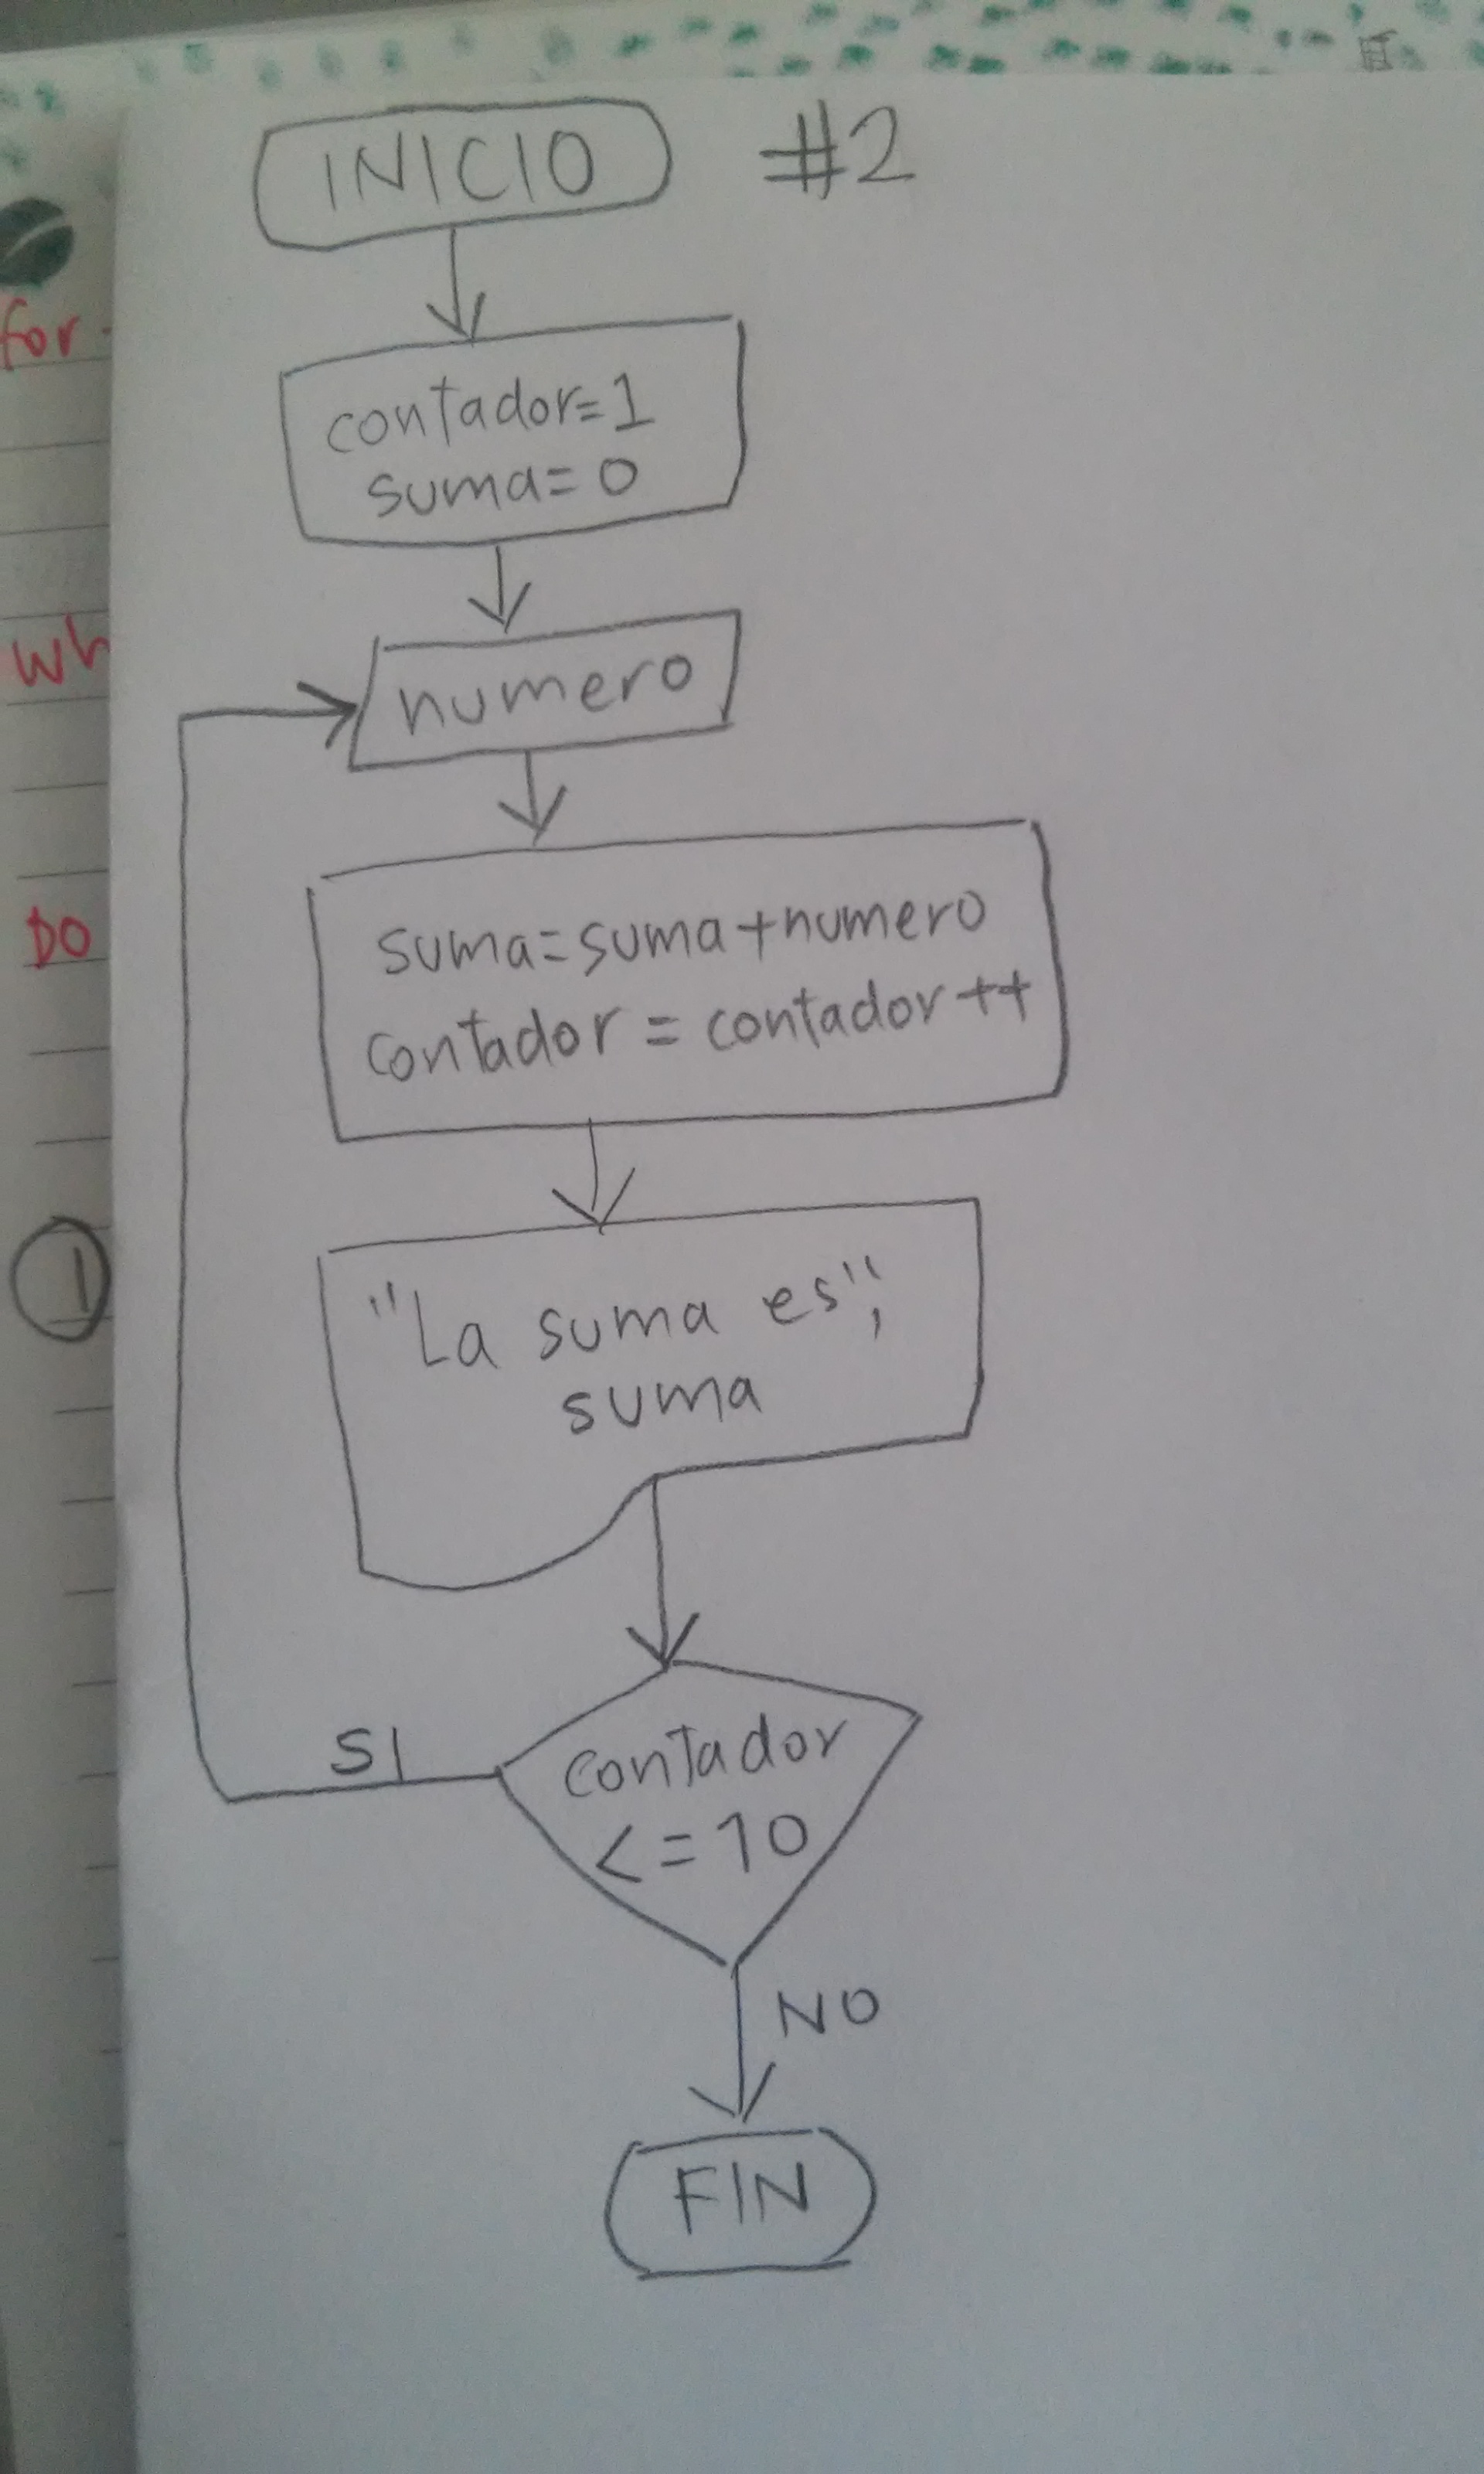 INICIO #2
for
contador=1
suma=0
Wh
numero
DO
suma=suma+numero
contador = contador++
1
"La suma es",
suma
SI
contador
<=10
NO
FIN